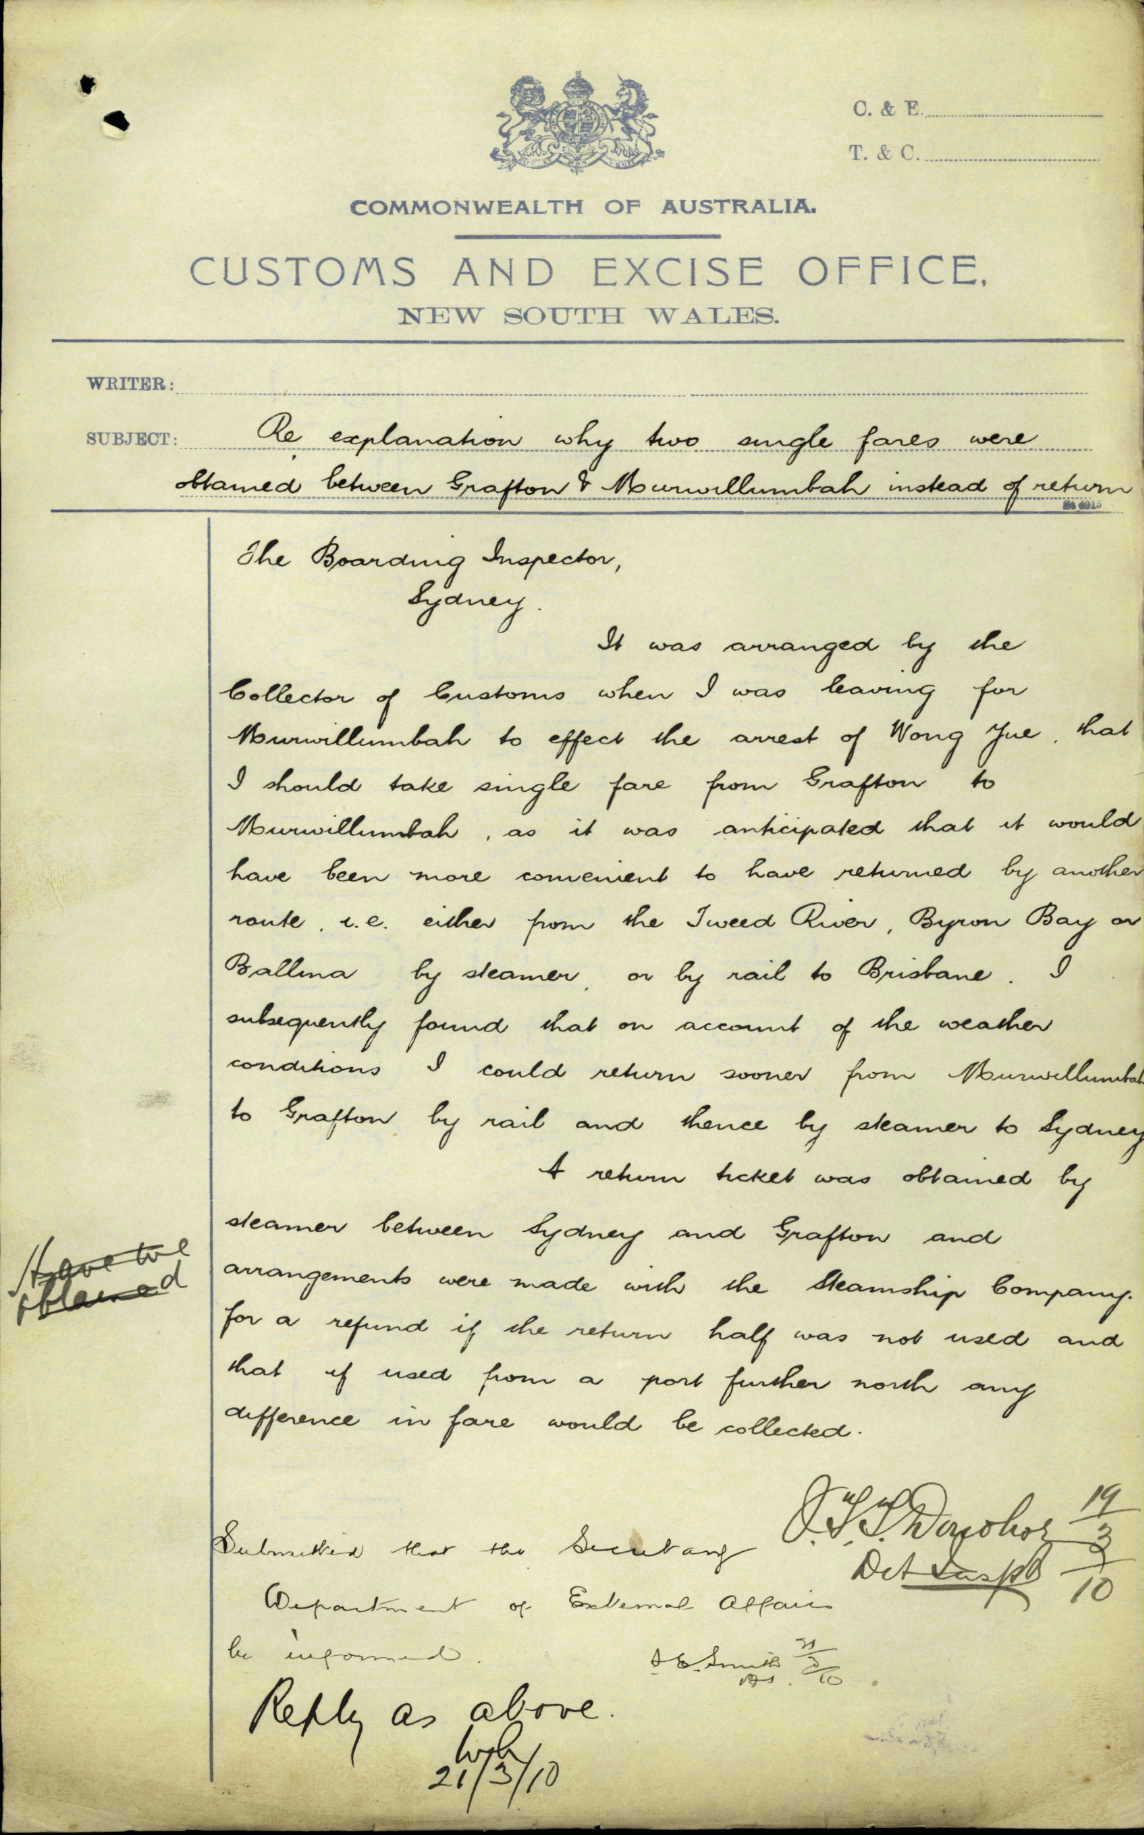 C. & E.
T. & C.
COMMONWEALTH OF AUSTRALIA.
CUSTOMS AND EXCISE OFFICE,
NEW SOUTH WALES.
WRITER:
SUBJECT: Re explanation why two single fares were
obtained between Grafton & Murwillumbah instead of return
The Boarding Inspector,
Sydney.
It was arranged by the
Collector of Customs when I was leaving for
Murwillumbah to effect the arrest of Wong Yue, that
I should take single fare from Grafton to
Murwillumbah, as it was anticipated that it would
have been more convenient to have returned by another
route, i.e. either from the Tweed River, Byron Bay or
Ballina by steamer, or by rail to Brisbane. I
subsequently found that on account of the weather
conditions I could return sooner from Murwillumbah
to Grafton by rail and thence by steamer to Sydney
A return ticket was obtained by
steamer between Sydney and Grafton and
arrangements were made with the Steamship Company.
for a refund if the return half was not used and
that if used from a port further north any
difference in fare would be collected.
Have we
obtained
J.T.T. Donohoe 19/3/10
Det Inspr
Submitted that the Secretary
Department of External Affairs
be informed.
Smith 21/3/10
Reply as above.
21/3/10